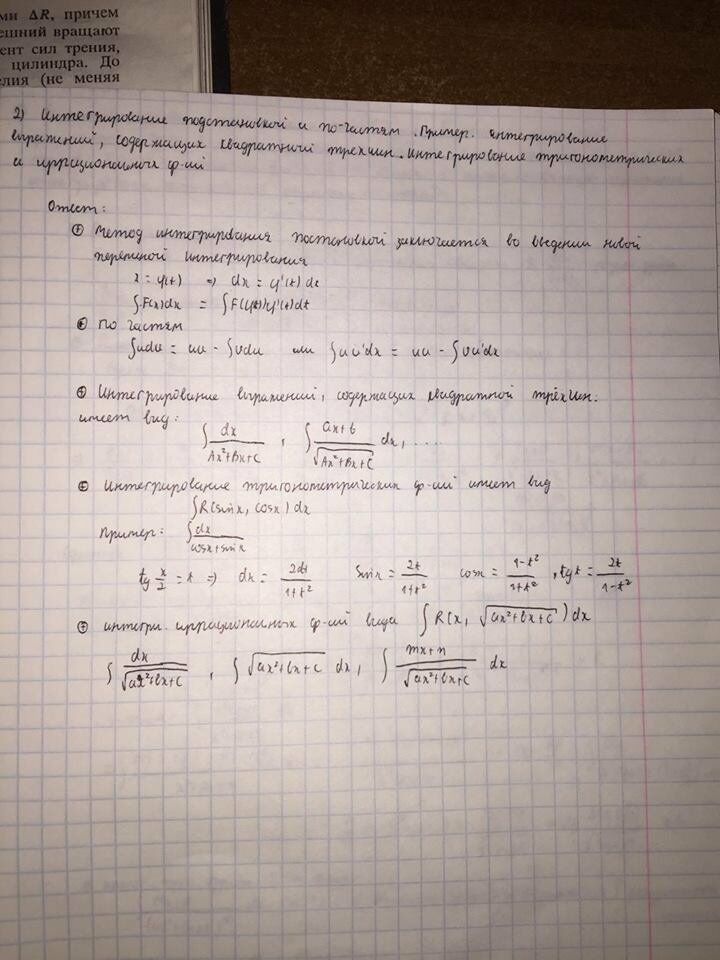 ми ΔR, причем
ешний вращают
ент сил трения,
цилиндра. До
елия (не меняя
2) Интегрирование подстановкой и по-частям. Пример. интегрирование
выражений, содержащих квадратный трехчлен. Интегрирование тригонометрических
и иррациональных ф-ий
Ответ:
① Метод интегрирования постановкой заключается во введении новой
переменой интегрирования
x = φ(t) ⇒ dx = φ'(t) dt
∫F(x)dx = ∫F(φ(t))φ'(t)dt
② по частям
∫udv = uv - ∫vdu или ∫uv'dx = uv - ∫vu'dx
③ Интегрирование выражений, содержащих квадратной трёхчлен.
имеет вид:
∫ dx/(Ax²+Bx+C) , ∫ (ax+b)/√(Ax²+Bx+C) dx, ....
④ Интегрирование тригонометрических ф-ий имеет вид
∫R(sinx, cosx)dx
Пример: ∫ dx/(cosx+sinx)
tg x/2 = t ⇒ dx = 2dt/(1+t²) sinx = 2t/(1+t²) cosx = (1-t²)/(1+t²) , tgx = 2t/(1-t²)
⑤ интегр. иррациональных ф-ий вида ∫R(x, √(ax²+bx+c))dx
∫ dx/√(ax²+bx+c) , ∫√(ax²+bx+c) dx, ∫ (mx+n)/√(ax²+bx+c) dx